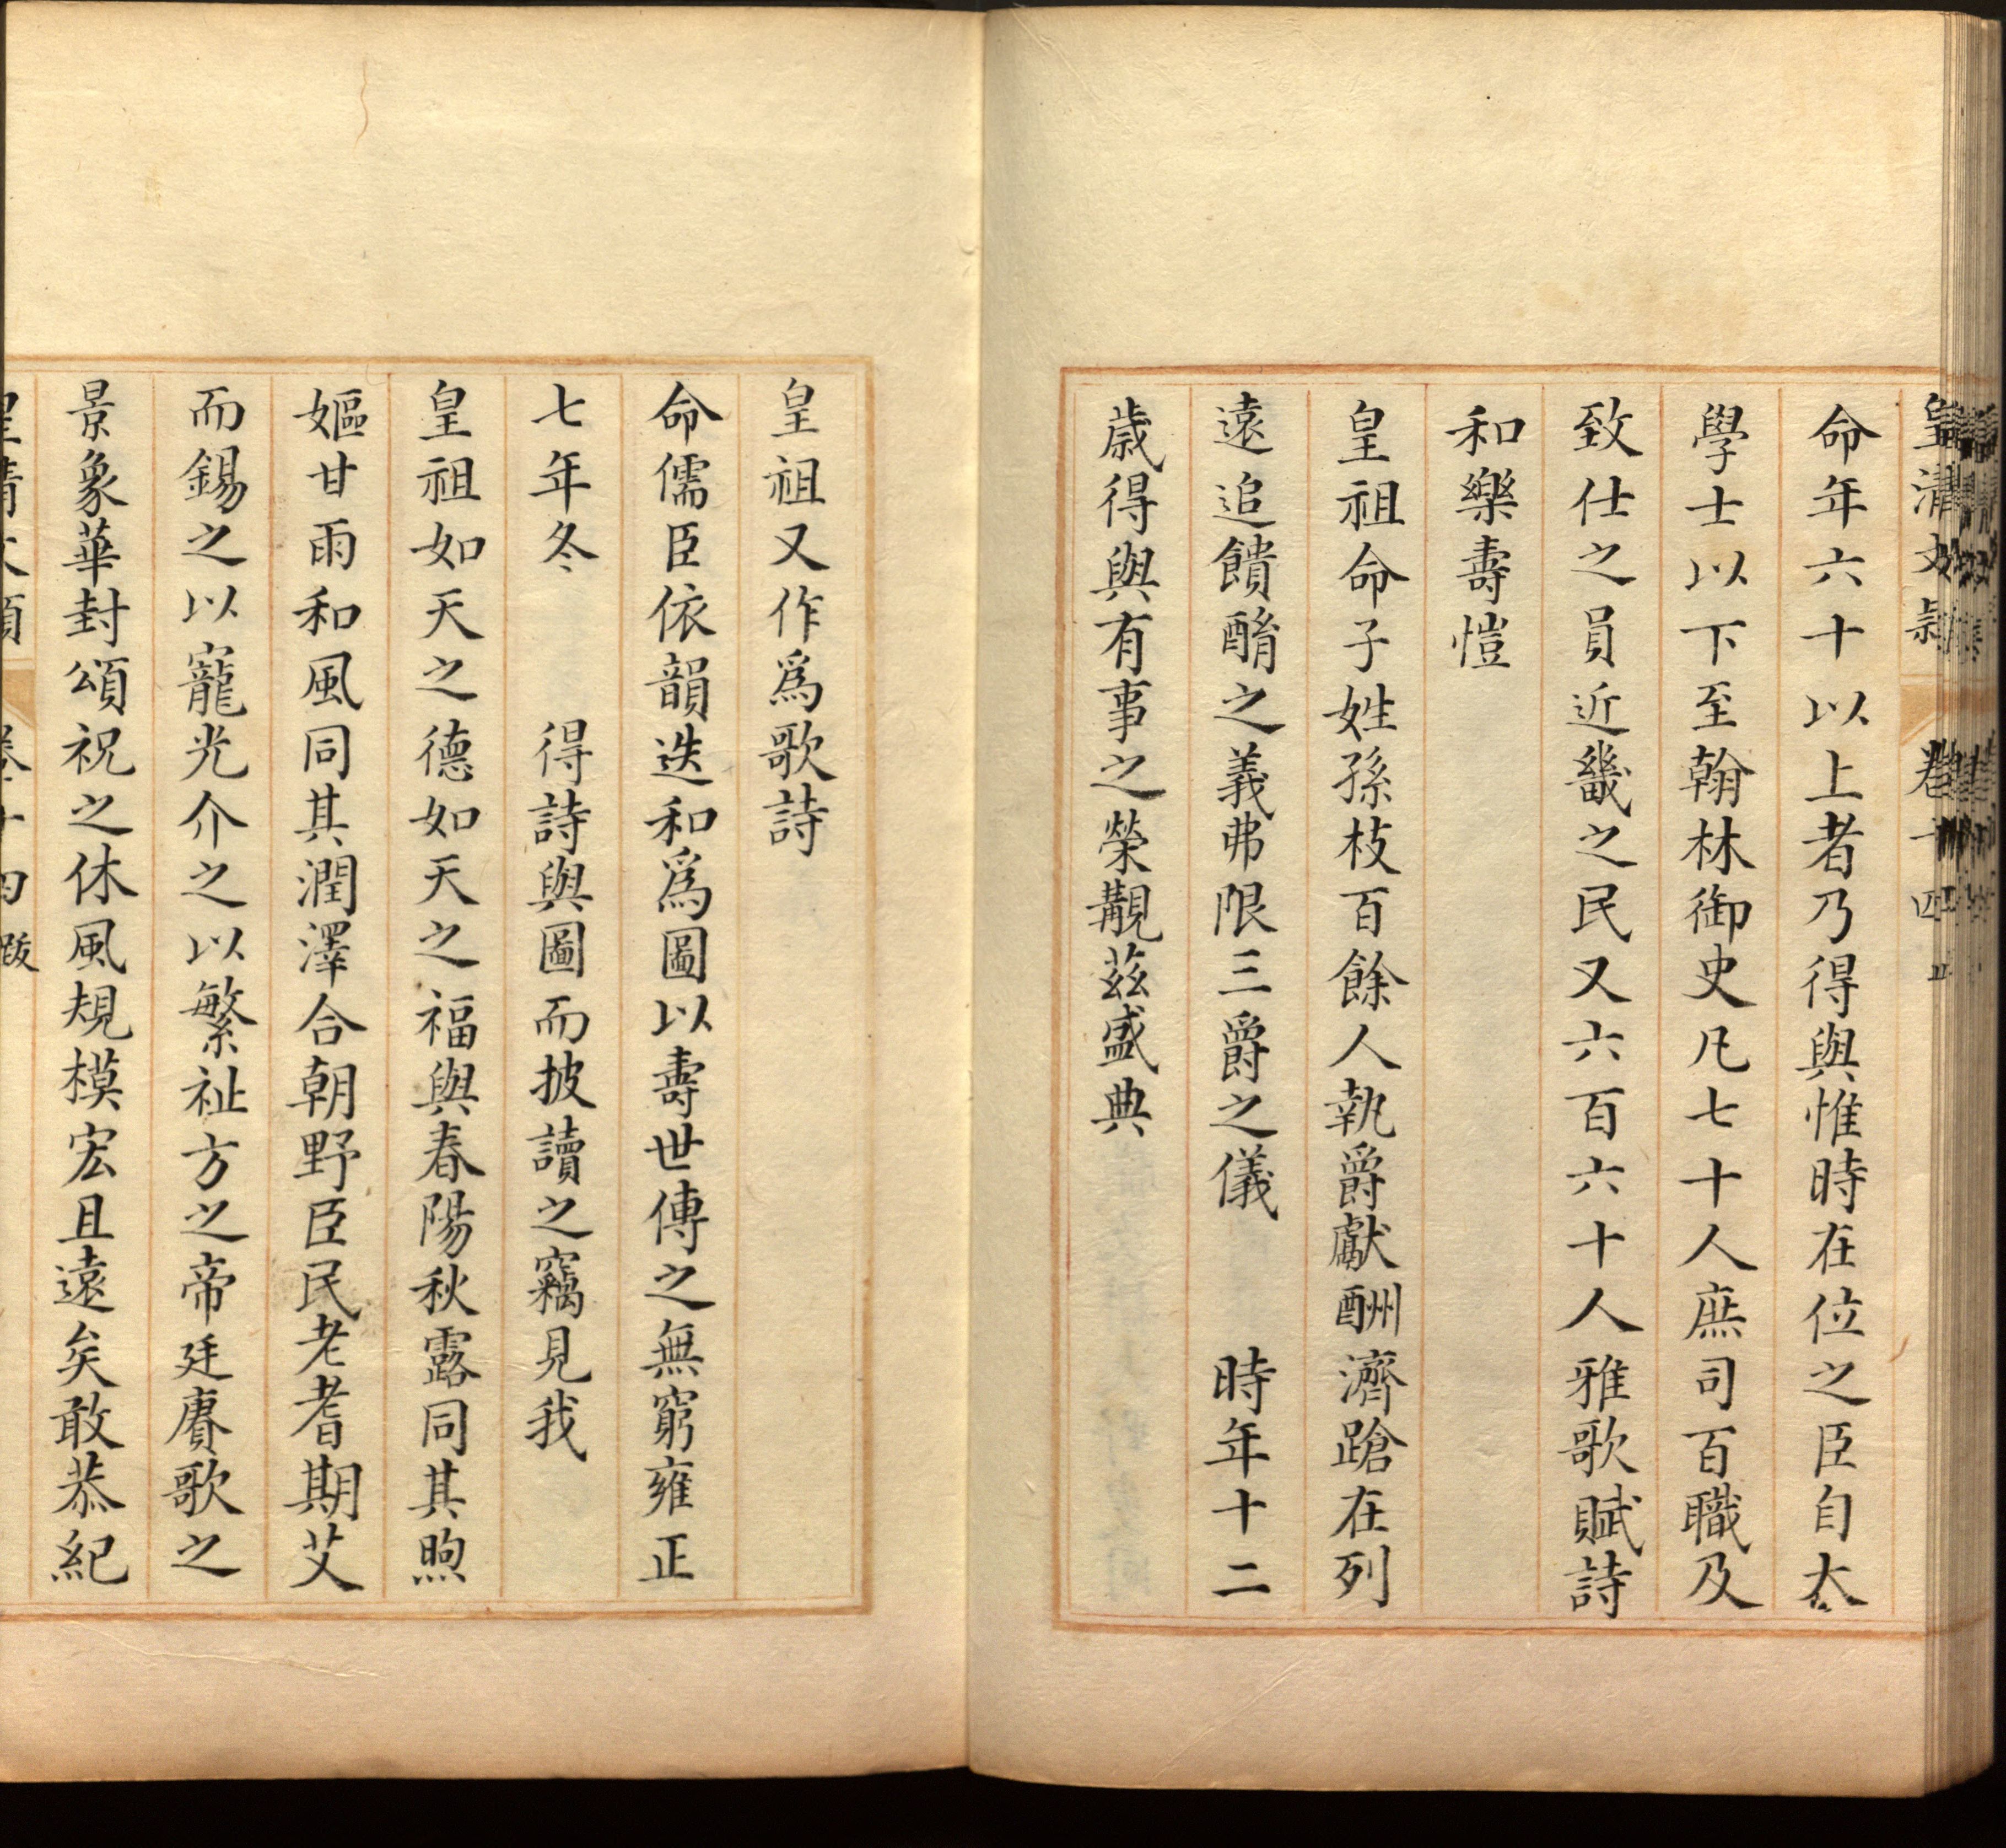 皇清文穎 卷十四
命年六十以上者乃得與惟時在位之臣自大
學士以下至翰林御史凡七十人庶司百職及
致仕之員近畿之民又六百六十人雅歌賦詩
和樂壽愷
皇祖命子姓孫枝百餘人執爵獻酬濟蹌在列
遠追饋酳之義弗限三爵之儀 時年十二
歲得與有事之榮覯茲盛典
皇祖又作爲歌詩
命儒臣依韻迭和爲圖以壽世傳之無窮雍正
七年冬 得詩與圖而披讀之竊見我
皇祖如天之德如天之福與春陽秋露同其煦
嫗甘雨和風同其潤澤合朝野臣民老耆期艾
而錫之以寵光介之以繁祉方之帝廷賡歌之
景象華封頌祝之休風規模宏且遠矣敢恭紀
皇清文穎 卷十四